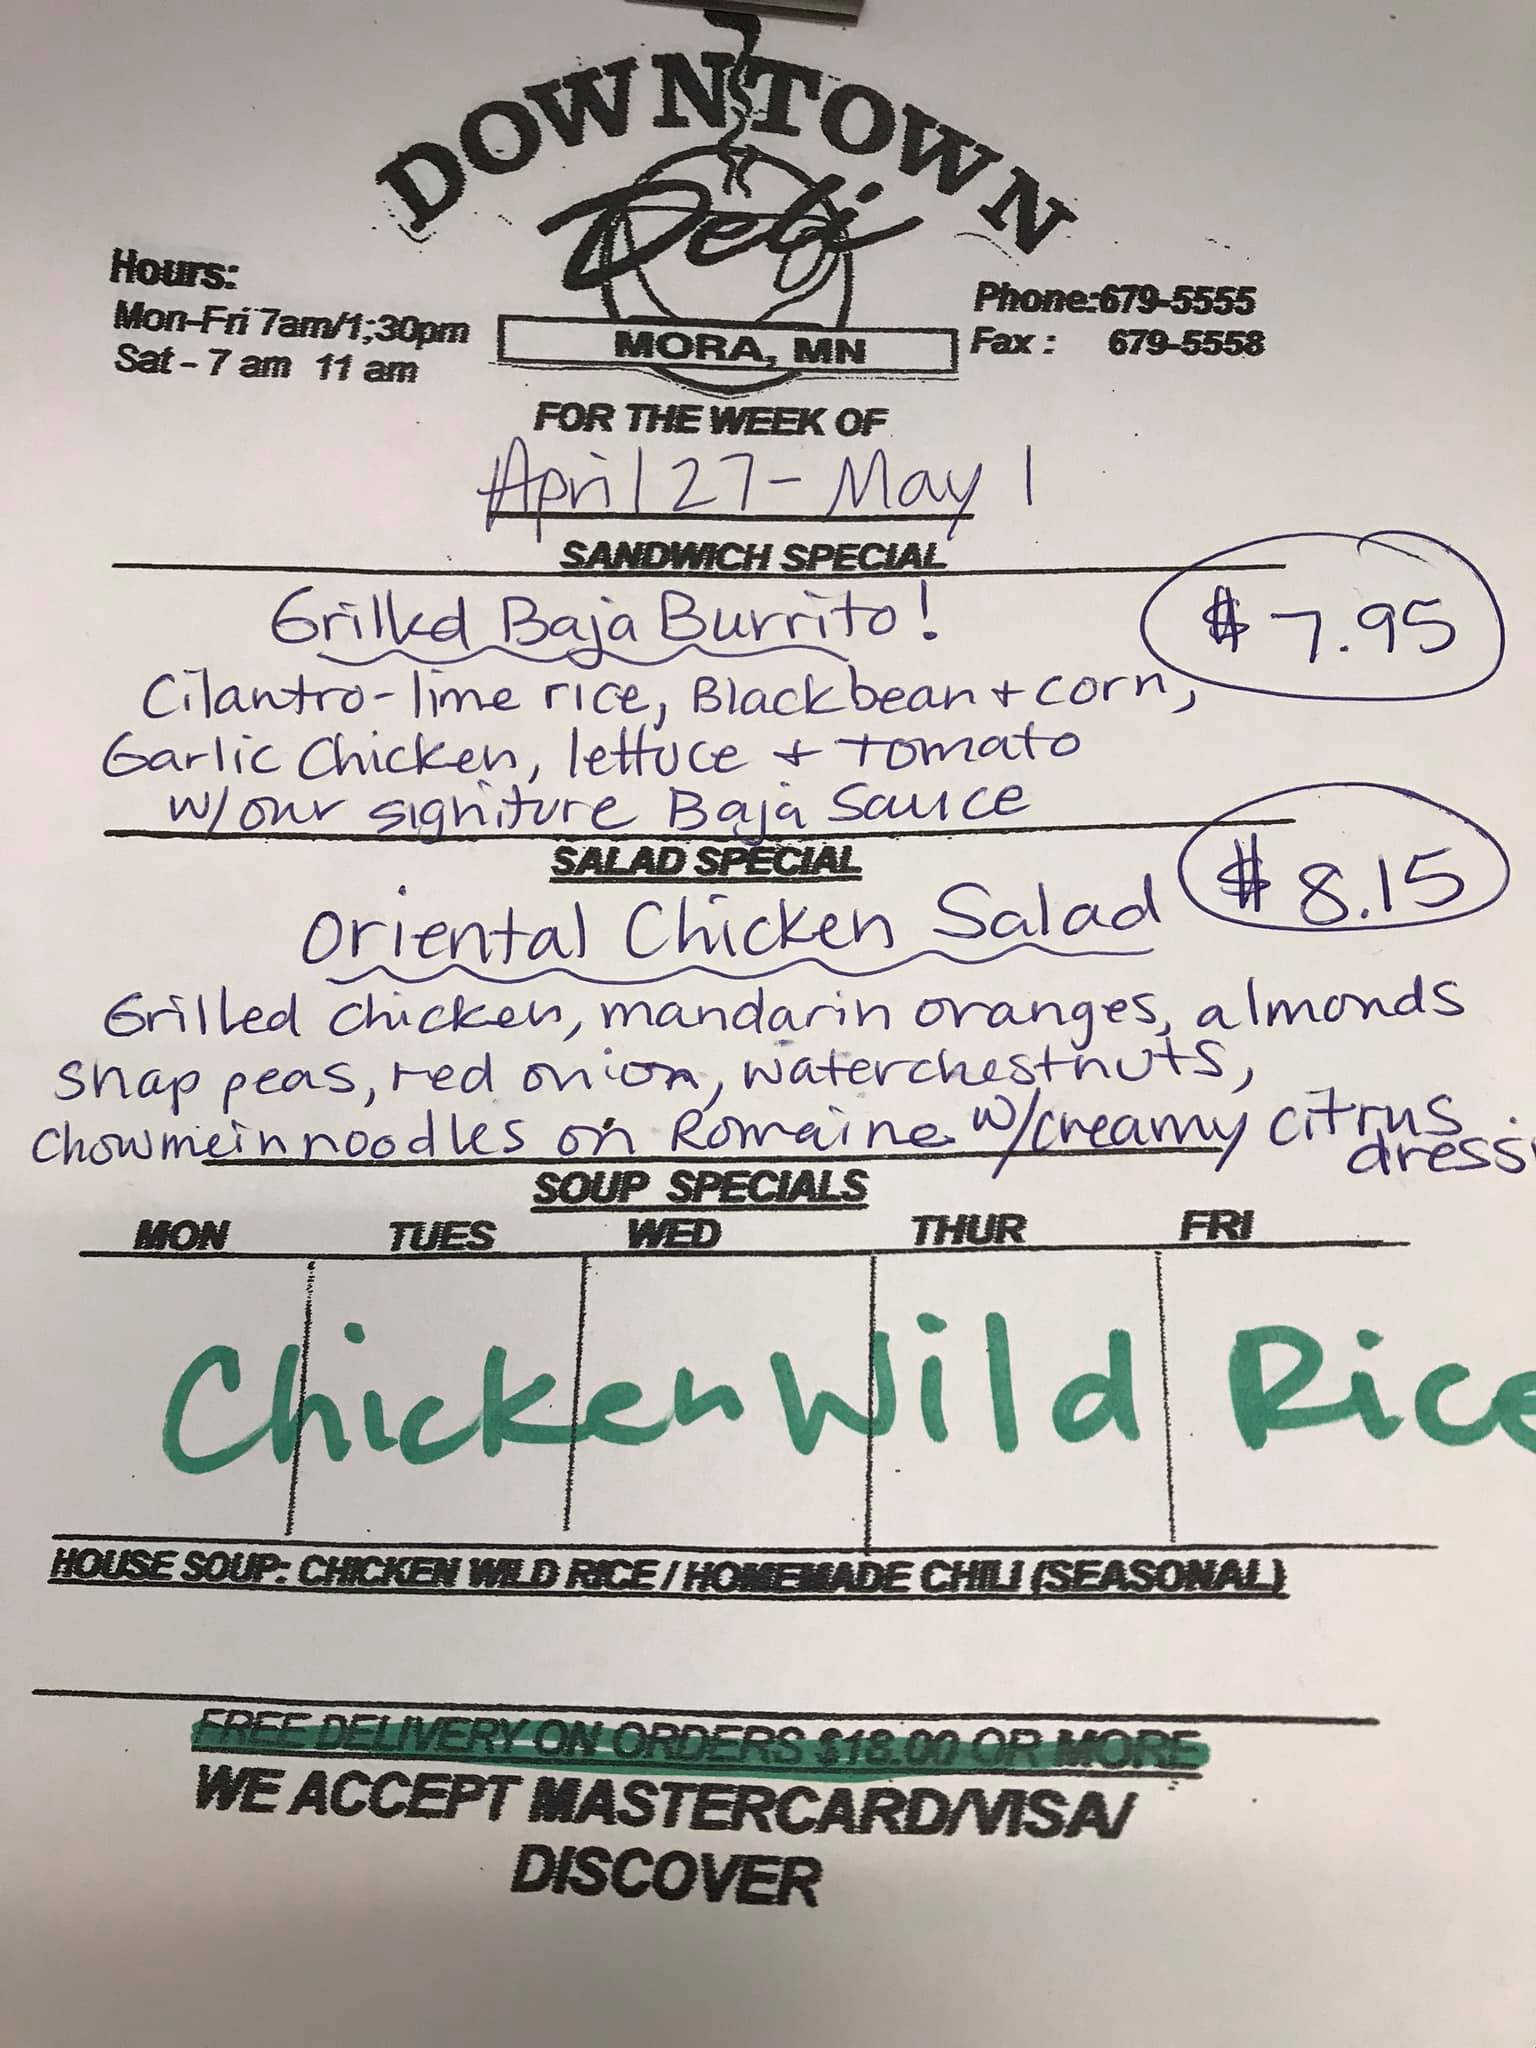 DOWNTOWN
Deli
MORA, MN
Hours:
Mon-Fri 7am/1;30pm
Sat - 7 am 11 am
Phone:679-5555
Fax : 679-5558
FOR THE WEEK OF
April 27 - May 1
SANDWICH SPECIAL
Grilled Baja Burrito!
$7.95
Cilantro-lime rice, Blackbean + corn,
Garlic Chicken, lettuce + tomato
w/our signiture Baja Sauce
SALAD SPECIAL
$8.15
Oriental Chicken Salad
Grilled chicken, mandarin oranges, almonds
snap peas, red onion, waterchestnuts,
chowmein noodles on Romaine w/creamy citrus
dressi
SOUP SPECIALS
MON TUES WED THUR FRI
Chicken Wild Rice
HOUSE SOUP: CHICKEN WILD RICE / HOMEMADE CHILI (SEASONAL)
FREE DELIVERY ON ORDERS $18.00 OR MORE
WE ACCEPT MASTERCARD/VISA/
DISCOVER